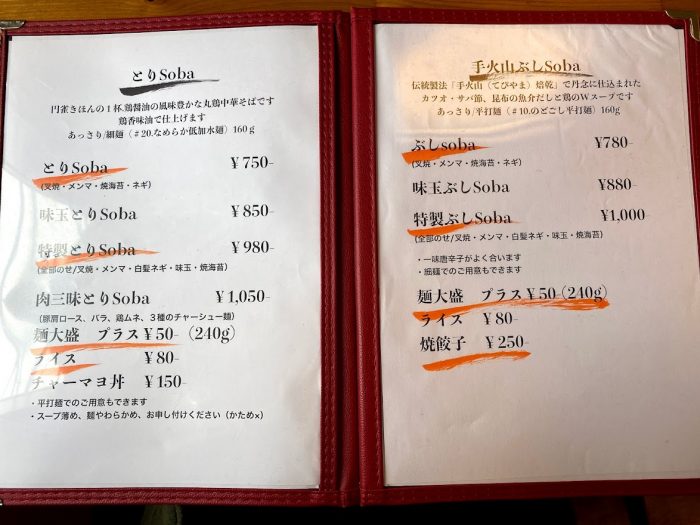 とりSoba
円雀きほんの1杯.鶏醤油の風味豊かな丸鶏中華そばです
鶏香味油で仕上げます
あっさり/細麺（＃20.なめらか低加水麺）160g
とりSoba ¥750-
(叉焼・メンマ・焼海苔・ネギ)
味玉とりSoba ¥850-
特製とりSoba ¥980-
(全部のせ/叉焼・メンマ・白髪ネギ・味玉・焼海苔)
肉三昧とりSoba ¥1,050-
(豚肩ロース、バラ、鶏ムネ、３種のチャーシュー麺)
麺大盛 プラス¥50-（240g）
ライス ¥80-
チャーマヨ丼 ¥150-
・平打麺でのご用意もできます
・スープ薄め、麺やわらかめ、お申し付けください（かため×）
手火山ぶしSoba
伝統製法「手火山（てびやま）焙乾」で丹念に仕込まれた
カツオ・サバ節、昆布の魚介だしと鶏のWスープです
あっさり/平打麺（＃10.のどごし平打麺）160g
ぶしSoba ¥780-
(叉焼・メンマ・焼海苔・ネギ)
味玉ぶしSoba ¥880-
特製ぶしSoba ¥1,000-
(全部のせ/叉焼・メンマ・白髪ネギ・味玉・焼海苔)
・一味唐辛子がよく合います
・細麺でのご用意もできます
麺大盛 プラス¥50-（240g）
ライス ¥80-
焼餃子 ¥250-